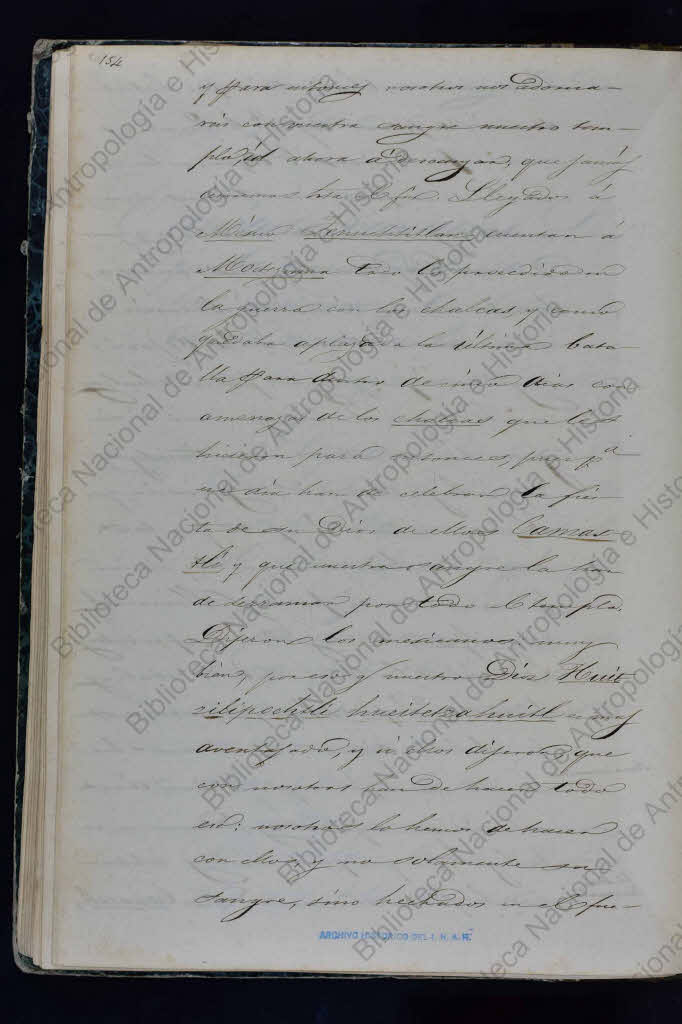 154
y para entonces nosotros nos adorna-
rás con vuestra sangre nuestro tem-
plo, id ahora á descansar, que
Llegados á
México Tenuchtitlan cuentan á
Moctezuma todo lo procedido en
la guerra con los chalcas, y como
quedaba aplazada la última bata
lla para dentro de cinco dias con
amenazas de los chalcas que les
hicieron para entonces, pues pa.
ese día han de celebrar la fies
ta de su Dios de ellos Camax
tli, y que nuestra sangre la han
de derramar por todo el templo.
Dijeron los mexicanos: muy
bien, por eso y nuestro Dios Huit
zilipochtli hueitetzahuitl es muy
aventajado, y si ellos dijeron, que
con nosotros han de hacer todo
eso: nosotros lo hemos de hacer
con ellos, y no solamente su
sangre, sino hechados en el fue-
ARCHIVO HISTORICO DEL I. N. A. H.
Biblioteca Nacional de Antropología e Historia